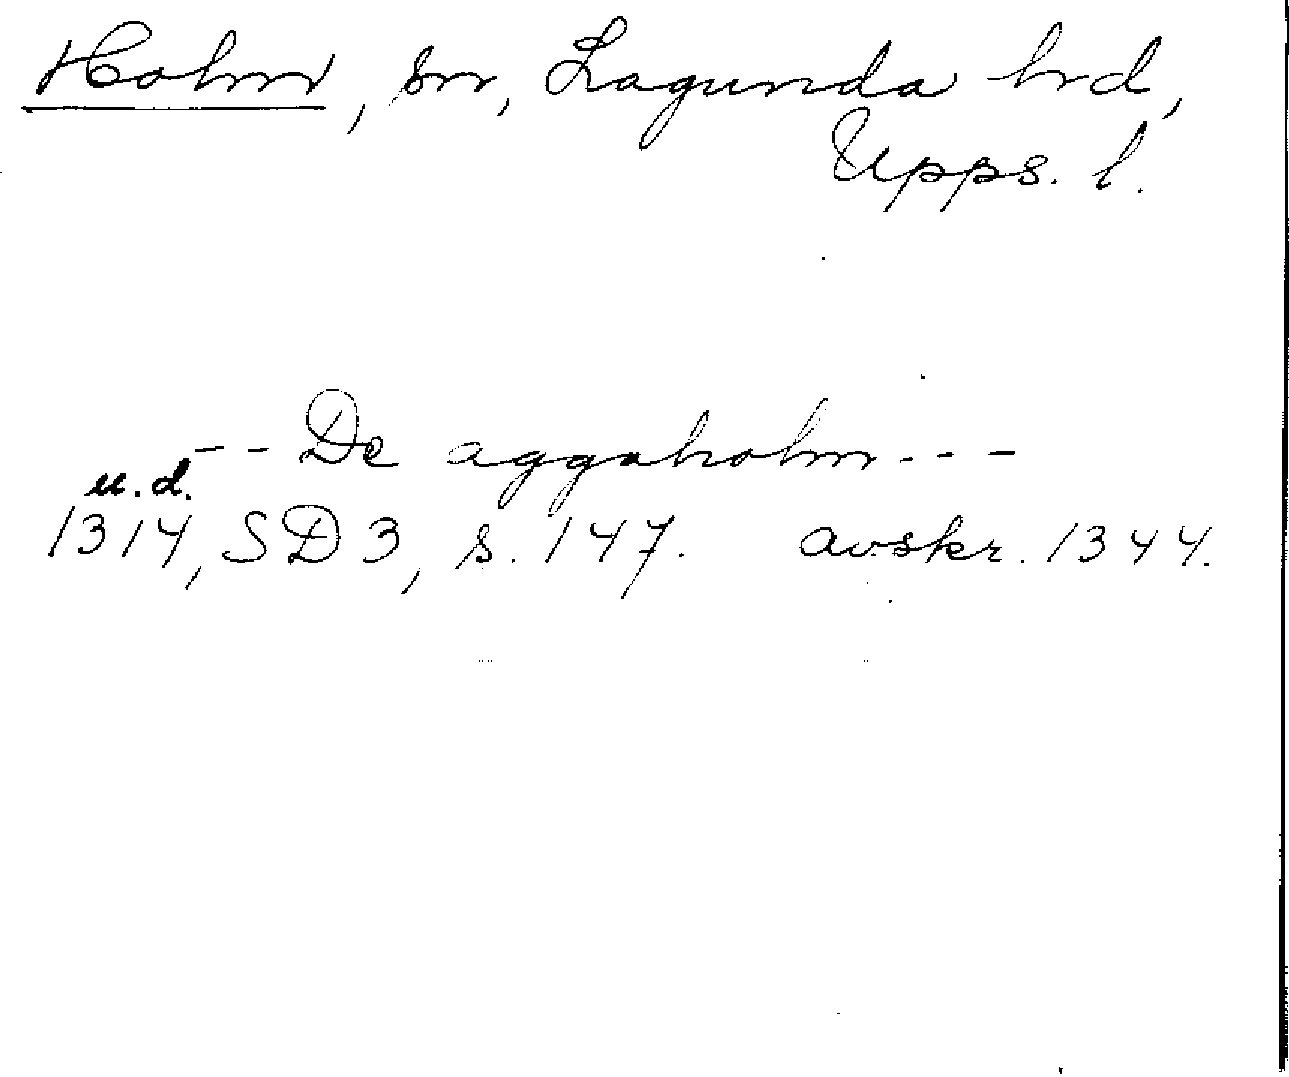 Holm, sn, Lagunda hrd,
Upps. l.
-- De aggaholm ---
u.d.
1314, SD 3, s. 147. avskr. 1344.